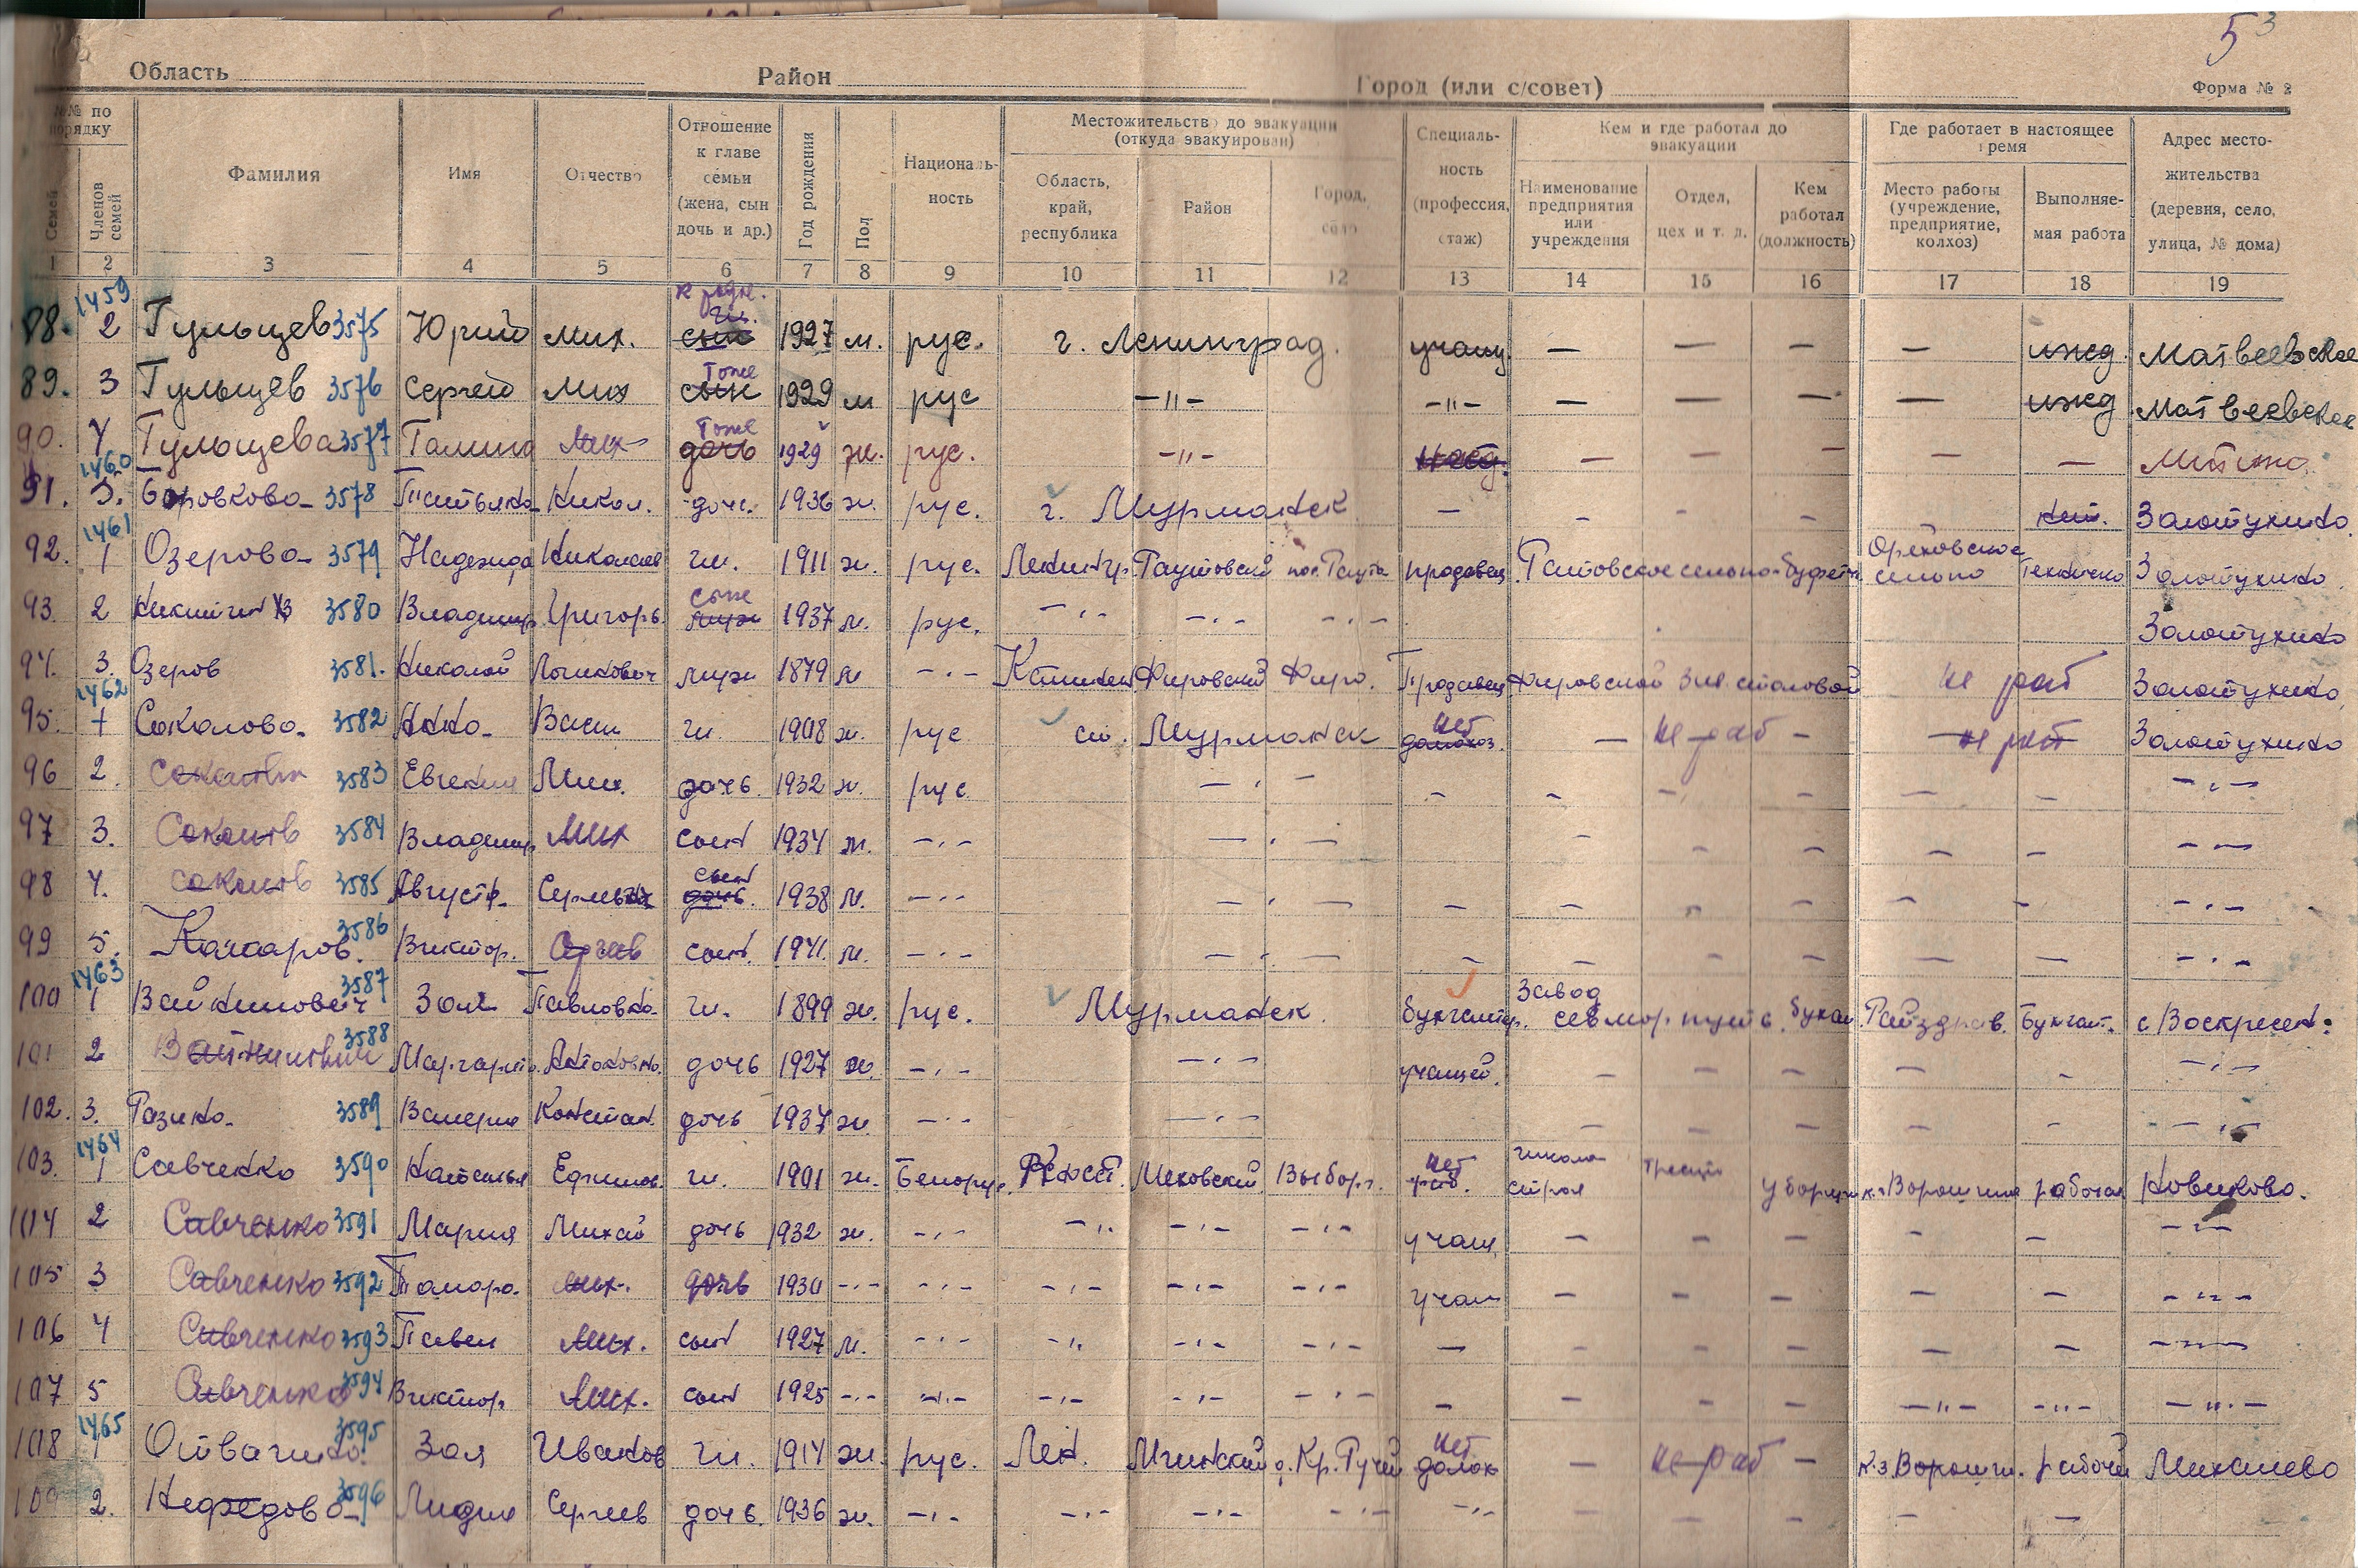 53
Область Район Город (или с/совет) Форма № 2
№№ по порядку
Семей
Членов семей
Фамилия
Имя
Отчество
Отношение к главе семьи (жена, сын дочь и др.)
Год рождения
Пол
Националь-ность
Местожительство до эвакуации (откуда эвакуирован)
Область, край, республика
Район
Город, село
Специаль-ность (профессия, стаж)
Кем и где работал до эвакуации
Наименование предприятия или учреждения
Отдел, цех и т. д.
Кем работал (должность)
Где работает в настоящее время
Место работы (учреждение, предприятие, колхоз)
Выполняе-мая работа
Адрес место-жительства (деревня, село, улица, № дома)
1 2 3 4 5 6 7 8 9 10 11 12 13 14 15 16 17 18 19
88. 1459 2 Гульцев 3575 Юрий Мих. сын 1927 м. рус. г. Ленинград. — — — ижд. Матвеевское
89. 3 Гульцев 3576 Сергей Мих тоже сын 1929 м рус —"— —"— — — — — ижд. Матвеевское
90. 4 Гульцева 3577 Галина Мих тоже дочь 1929 ж. рус. —"— ижд. — — — — — Митино
91. 1460 5. Боровкова 3578 Татьяна Никол. дочь. 1936 ж. рус. г. Мурманск — — — — Золотухино.
92. 1461 1 Озерова 3579 Надежда Николаев гл. 1911 ж. рус. Ленингр. продавец Ореховское сельпо Золотухино.
93. 2 3580 Владимир Григорь. 1937 м. рус. —"— —"— —"— Золотухино
94. 3. Озеров 3581. Николай муж 1879 м —"— Калинин Фировский Фиро. Продавец Фировской столовой не раб Золотухино,
95. 1462 1 Соколова. 3582 Анна Васил гл. 1908 ж. рус ст. Мурманск нет домохоз. — не раб — не раб Золотухино
96 2. 3583 Евгения Мих. дочь. 1932 ж. рус —"— — — — — — — —"—
97 3. Соколов 3584 Владимир Мих сын 1934 м. —"— —"— — — — — — —"—
98 4. Соколов 3585 Август. сын дочь. 1938 м. —"— —"— — — — — — — —"—
99 5. Комаров. 3586 Виктор. Сергеев сын. 1941. м. —"— —"— — — — — — — —"—
100 1463 1 Войнинович 3587 Зоя Павловна. гл. 1899 ж. рус. Мурманск. бухгалтер. Завод севморпути. бухгал Райздрав. Бухгалт. с Воскресен:
101 2 3588 Маргарит. Антоновна. дочь 1927 ж. —"— —"— учащей. — — — — — —"—
102. 3. Разина. 3589 Валерия Констан. дочь 1937 ж. —"— —"— — — — — — —"—
103. 1464 1 Савченко 3590 Наталья Ефимов. гл. 1901 ж. Белорус. Выборг. нет раб. треста уборщи к-з Ворошил рабочая Новиково.
104 2 Савченко 3591 Мария Михай дочь 1932 ж. —"— —"— —"— —"— учащ. — — — — — —"—
105 3 Савченко 3592 Тамара. Мих. дочь 1930 —"— —"— —"— —"— —"— учащ — — — — — —"—
106 4 Савченко 3593 Павел Мих. сын 1927 м. —"— —"— —"— —"— — — — — — — —"—
107 5 Савченко 3594 Виктор. Мих. сын 1925 —"— —"— —"— —"— —"— — — — — —"— —"— —"—
108 1465 1 3595 Зоя Иванов гл. 1914 ж. рус. Лен. Мгинский нет домох — не раб — к-з Ворошил. рабочей Михалево
109 2. Нефедова 3596 Лидия Сергеев дочь. 1936 ж. —"— —"— —"— —"— —"— — — — — —